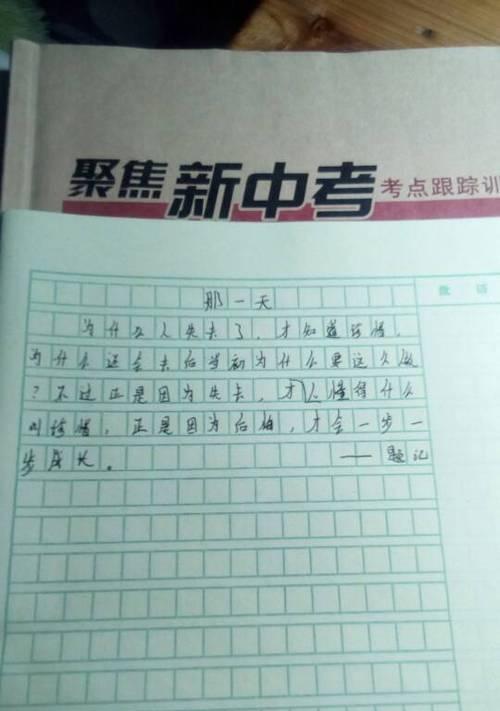 聚焦新中考 考点跟踪训
批语
那一天
为什么人失去了，才知道珍惜，
为什么还会去后当初为什么要这么做
？不过正是因为失去，才懂得什么
叫珍惜，正是因为后悔，才会一步一
步成长。 ——题记